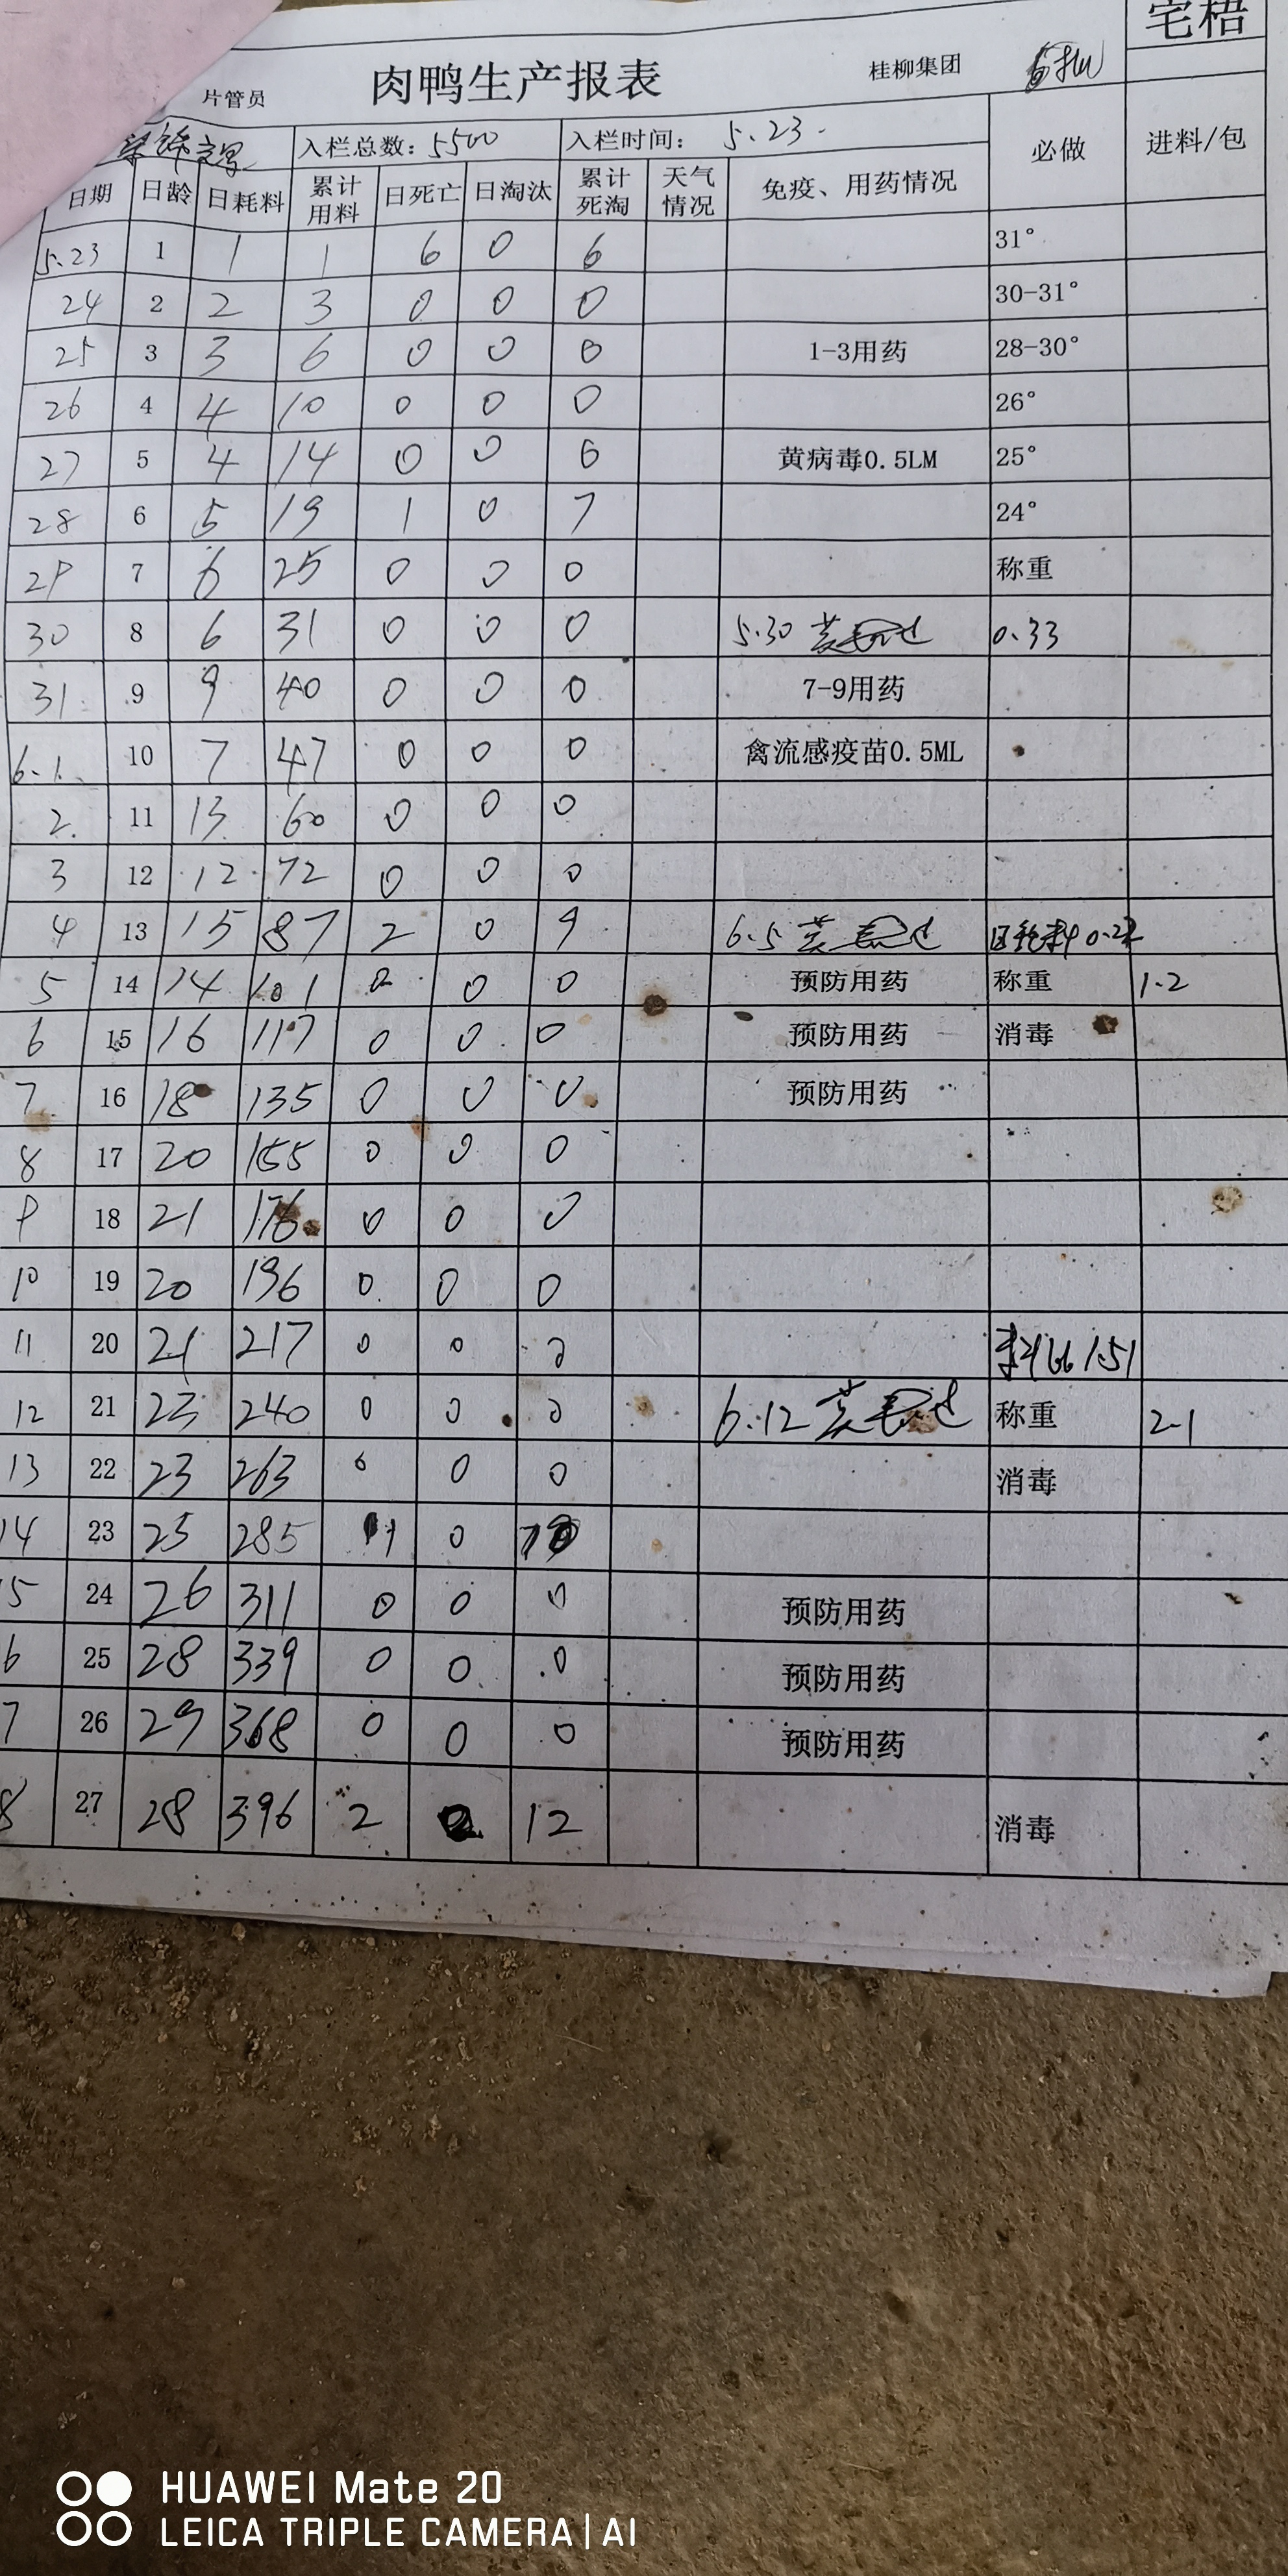 宅梧
片管员 肉鸭生产报表 桂柳集团
入栏总数: 5500 入栏时间: 5.23. 必做 进料/包
日期 日龄 日耗料 累计用料 日死亡 日淘汰 累计死淘 天气情况 免疫、用药情况
5.23 1 1 1 6 0 6 31°
24 2 2 3 0 0 0 30-31°
25 3 3 6 0 0 0 1-3用药 28-30°
26 4 4 10 0 0 0 26°
27 5 4 14 0 0 6 黄病毒0.5LM 25°
28 6 5 19 1 0 7 24°
29 7 6 25 0 0 0 称重
30 8 6 31 0 0 0 5.30 0.33
31 9 9 40 0 0 0 7-9用药
6.1 10 7 47 0 0 0 禽流感疫苗0.5ML
2. 11 13 60 0 0 0
3 12 12 72 0 0 0
4 13 15 87 2 0 9 6.5
5 14 14 101 0 0 预防用药 称重 1.2
6 15 16 117 0 0 0 预防用药 消毒
7 16 18 135 0 0 0 预防用药
8 17 20 155 0 0 0
9 18 21 176 0 0 0
10 19 20 196 0 0 0
11 20 21 217 0 0 0 料 1.51
12 21 23 240 0 0 0 6.12 称重 2.1
13 22 23 263 0 0 0 消毒
14 23 25 285 1 0
5 24 26 311 0 0 0 预防用药
6 25 28 339 0 0 0 预防用药
7 26 29 368 0 0 0 预防用药
8 27 28 396 2 12 消毒
HUAWEI Mate 20
LEICA TRIPLE CAMERA | AI